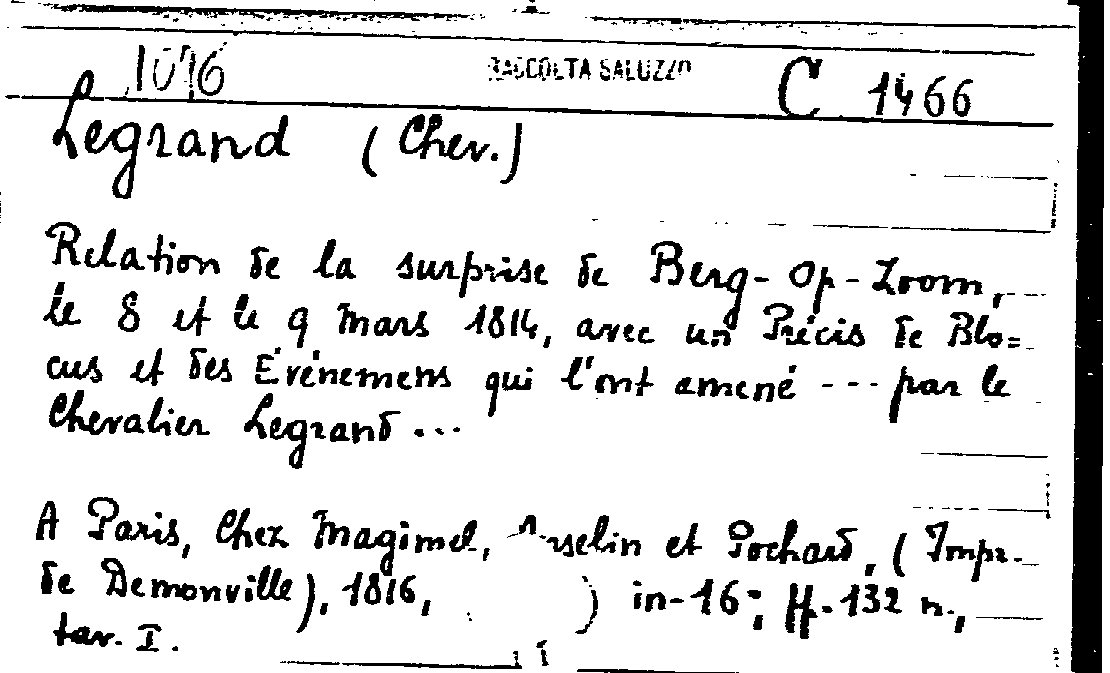 1016 RACCOLTA SALUZZO C 1466
Legrand (Chev.)
Relation de la surprise de Berg-Op-Zoom,
le 8 et le 9 Mars 1814, avec un Précis de Blo=
cus et des Événemens qui l'ont amené --- par le
Chevalier Legrand...
A Paris, Chez Magimel, Anselin et Pochard, (Impr.
de Demonville), 1816, ) in-16°; ff. 132 n.,
tav. I.